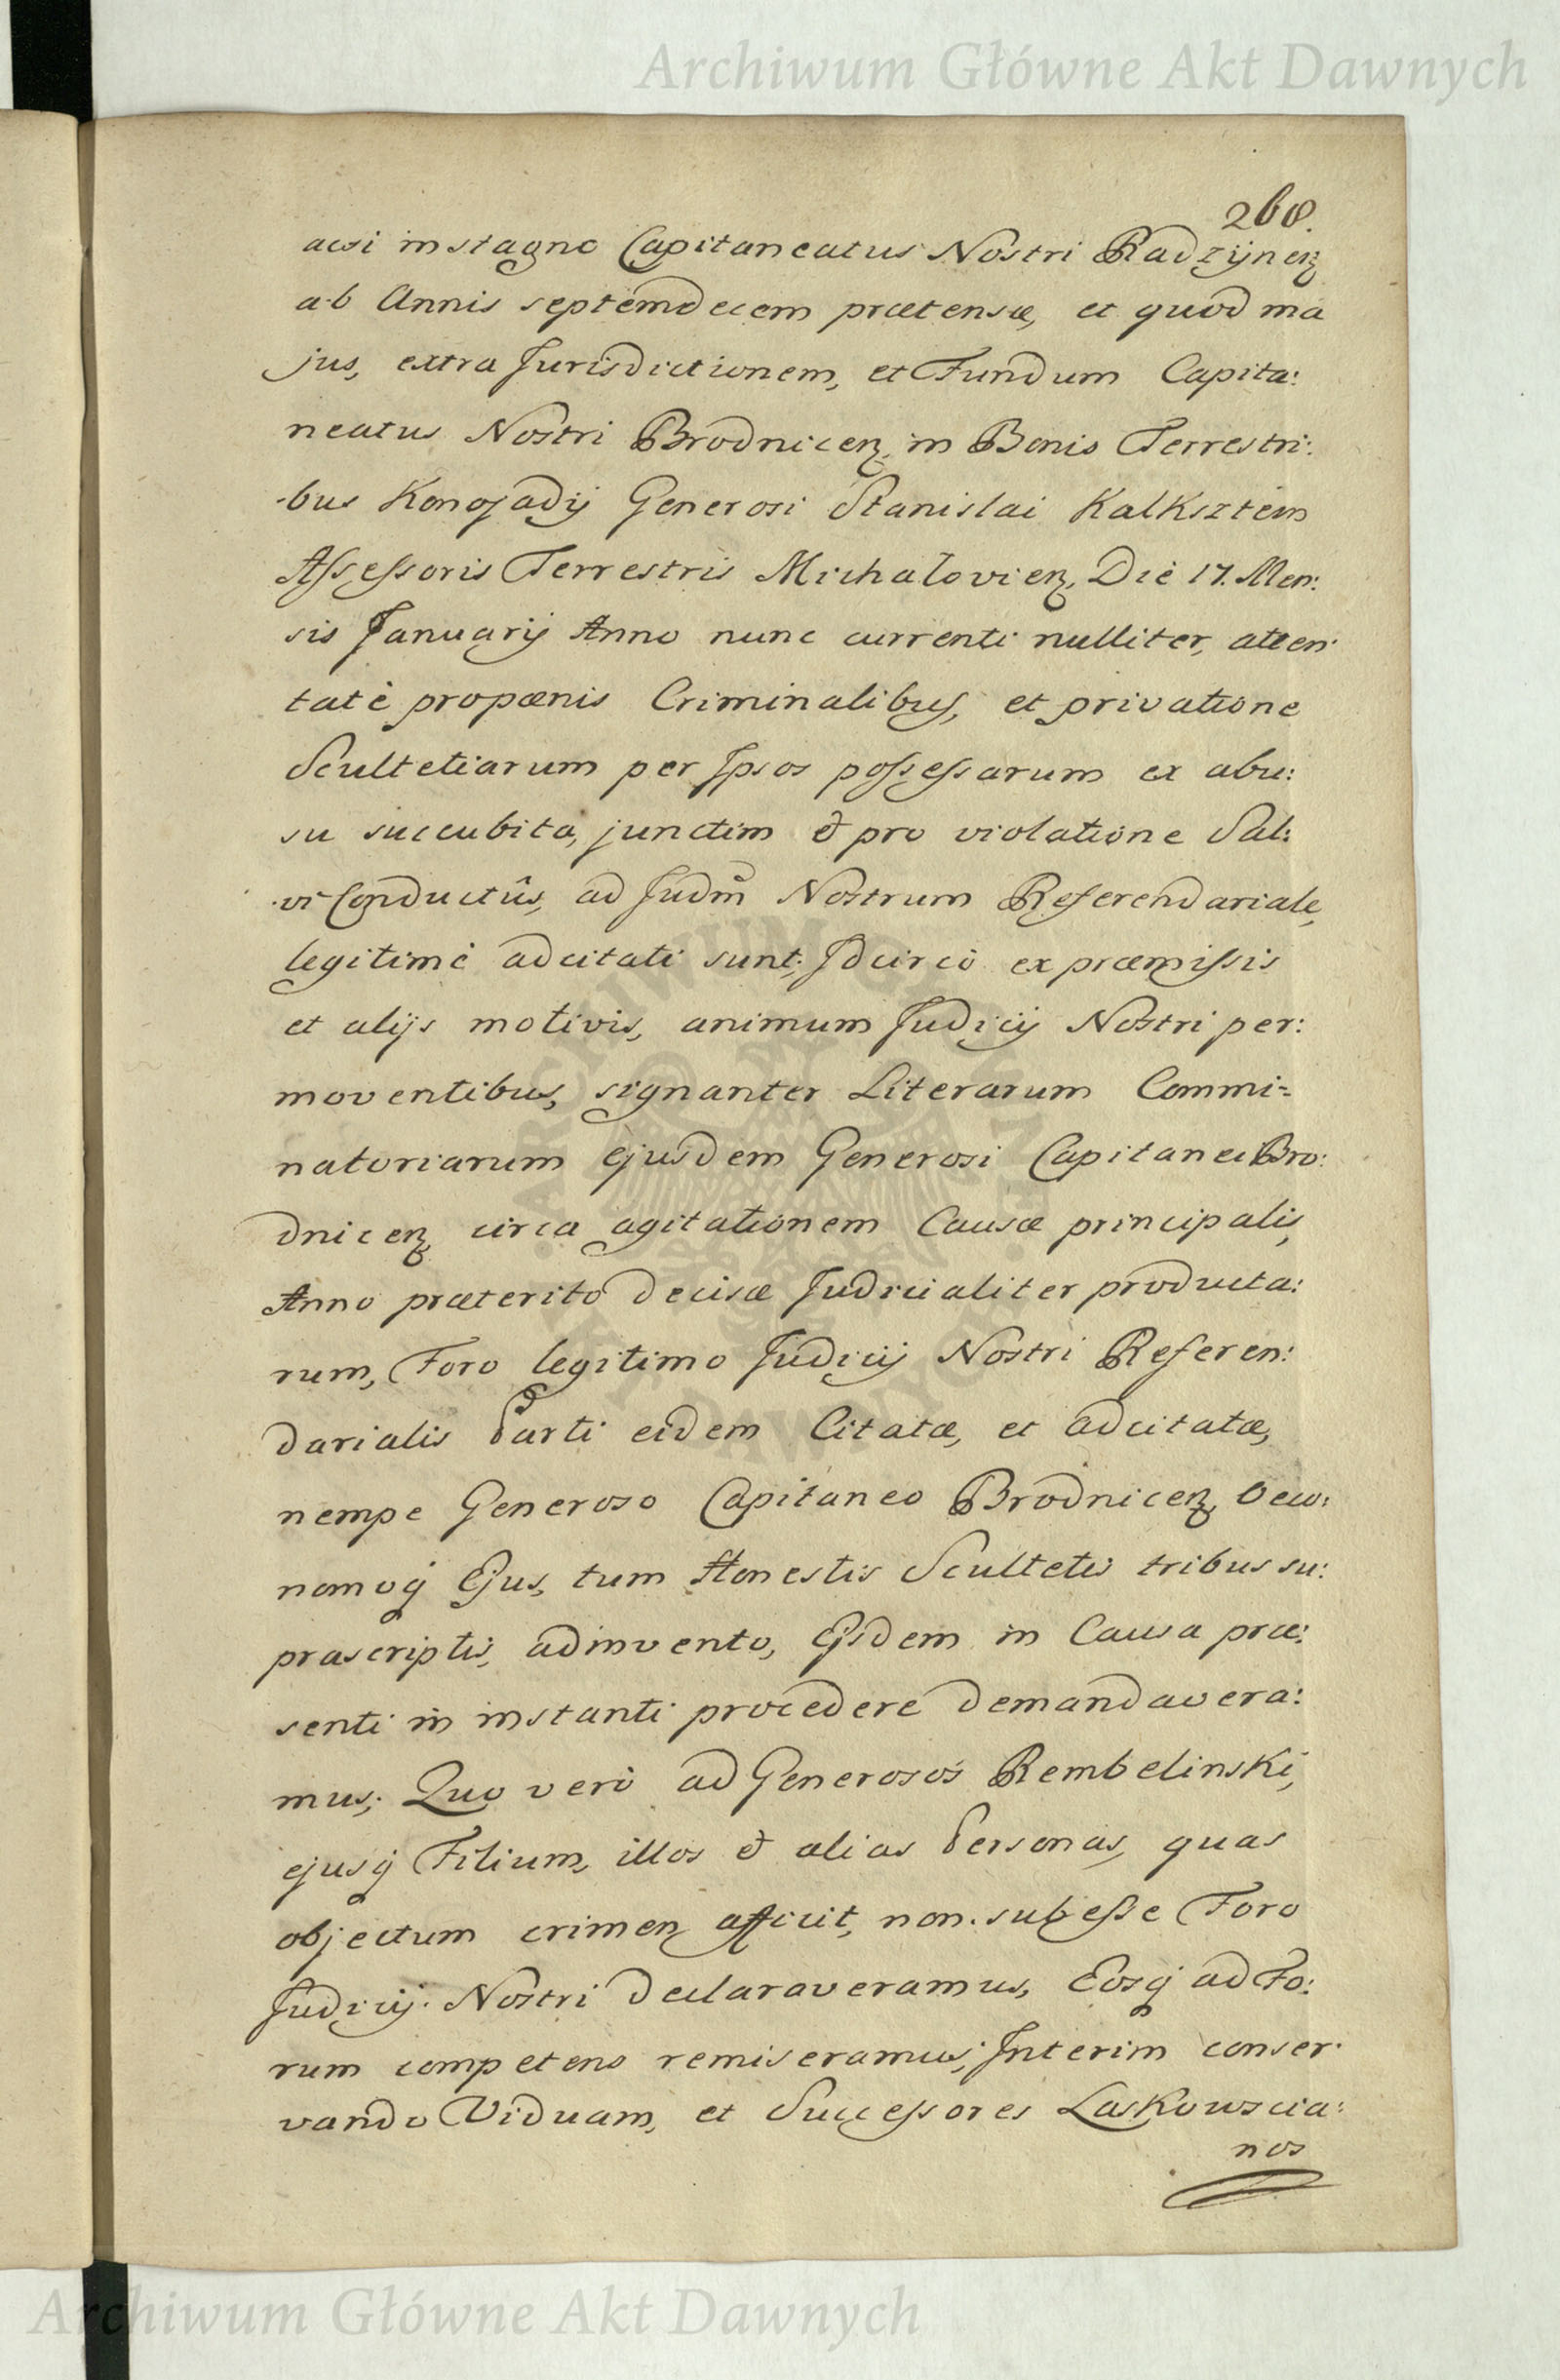 Archiwum Główne Akt Dawnych
268.
acsi in stagno Capitaneatus Nostri Radzÿnen̄
ab Annis septemdecem prætensæ, et quod ma
jus, extra Jurisdictionem, et Fundum Capita:
neatus Nostri Brodnicen̄, in Bonis Terrestri:
-bus Konojadÿ Generosi Stanislai Kalksztein
Aſseſsoris Terrestris Michałovien̄, Die 17. Men:
sis Januarÿ Anno nunc currenti nulliter, atten:
tatè propœnis Criminalibus, et privatione
Scultetiarum per Ipsos poſseſsarum ex abu:
su succubita, junctim & pro violatione Sal:
vi Conductûs, ad Judm̄ Nostrum Referendariale,
legitimè adcitati sunt; Idcircò ex præmiſsis
et alÿs motivis, animum Judicÿ Nostri per:
moventibus, signanter Literarum Commi=
natoriarum ejusdem Generosi Capitanei Bro:
dnicen̄ circa agitationem Causæ principalis,
Anno præterito decisæ Judicialiter producta:
rum, Foro legitimo Judicÿ Nostri Referen:
darialis Parti eidem Citatæ, et adcitatæ,
nempe Generoso Capitaneo Brodnicen̄, Oeco:
nomoq Ejus, tum Honestis Scultetis tribus su:
prascriptis, adinvento, Ejsdem in Causa præ:
senti in instanti procedere demandavera:
mus; Quo verò ad Generosos Rembelinski,
ejusq Filium, illos & alias Personas, quas
objectum crimen afficit, non subeſse Foro
Judicÿ Nostri declaraveramus, Eosq ad Fo:
rum competens remiseramus; Interim conser:
vando Viduam, et Succeſsores Laskowscia:
nos
Archiwum Główne Akt Dawnych